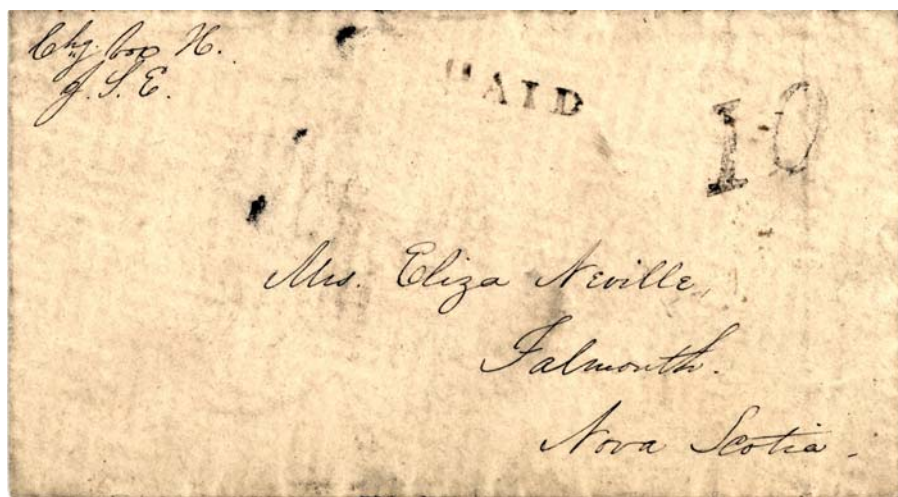 Chg. box H.
J. S. E.
PAID
10
Mrs. Eliza Neville,
Falmouth.
Nova Scotia.